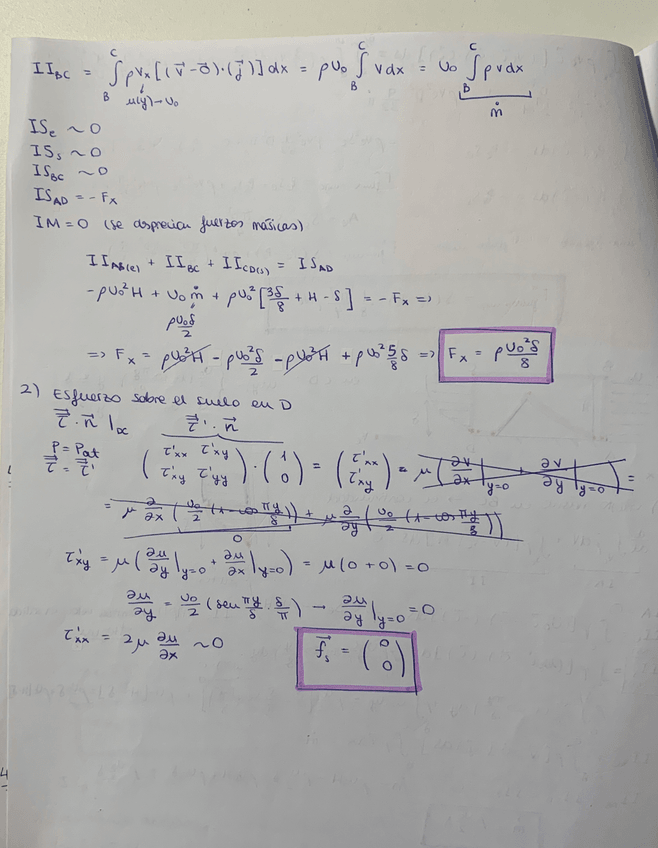 II_BC = ∫_B^C ρ v_x [(v⃗ - 0⃗)·(j⃗)] dx = ρ U₀ ∫_B^C v dx = U₀ ∫_B^C ρ v dx
u(y) → U₀
ṁ
IS_e ~ 0
IS_s ~ 0
IS_BC ~ 0
IS_AD = - F_x
IM = 0 (se desprecian fuerzas másicas)
II_AB(e) + II_BC + II_CD(s) = IS_AD
-ρU₀²H + U₀ ṁ + ρU₀² [3δ/8 + H - δ] = - F_x =>
ρU₀δ/2
=> F_x = ρU₀²H - ρU₀²δ/2 - ρU₀²H + ρU₀² 5/8 δ => F_x = ρ U₀²δ/8
2) Esfuerzo sobre el suelo en D
τ⃗⃗ · n⃗ |_DC τ⃗⃗' · n⃗
P = Pat
τ⃗⃗ = τ⃗⃗'
(τ'xx τ'xy ; τ'xy τ'yy) · (1 ; 0) = (τ'xx ; τ'xy) = μ (∂v/∂x |_y=0 + ∂v/∂y |_y=0) =
= μ ∂/∂x (U₀/2 (1 - cos πy/δ)) + μ ∂/∂y (U₀/2 (1 - cos πy/δ))
0
τ'xy = μ (∂u/∂y |_y=0 + ∂u/∂x |_y=0) = μ (0 + 0) = 0
∂u/∂y = U₀/2 (sen πy/δ · δ/π) → ∂u/∂y |_y=0 = 0
τ'xx = 2μ ∂u/∂x ~ 0 f⃗_s = (0 ; 0)